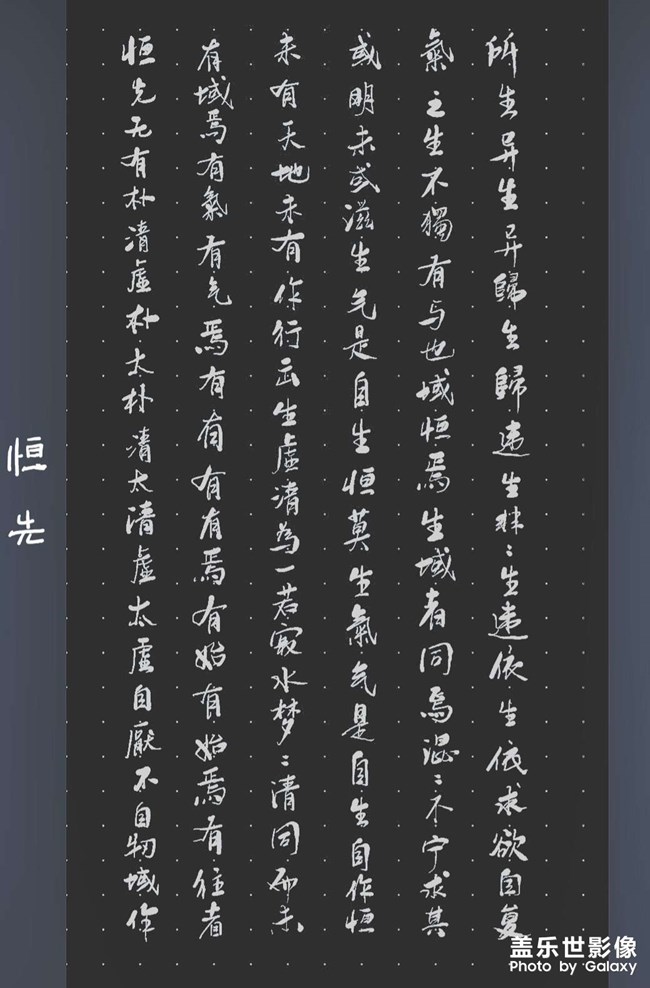 恒先
恒先无有朴清虛朴太朴清太清虛太虛自厭不自牣域作
有域焉有氣有气焉有有有有焉有始有始焉有往者
未有天地未有作行出生虛清為一若寂水梦〻清同而未
或明未或滋生气是自生恒莫生氣气是自生自作恒
氣之生不獨有与也域恒焉生域者同焉混〻不宁求其
所生异生异歸生歸違生非〻生違依生依求欲自复
盖乐世影像
Photo by Galaxy